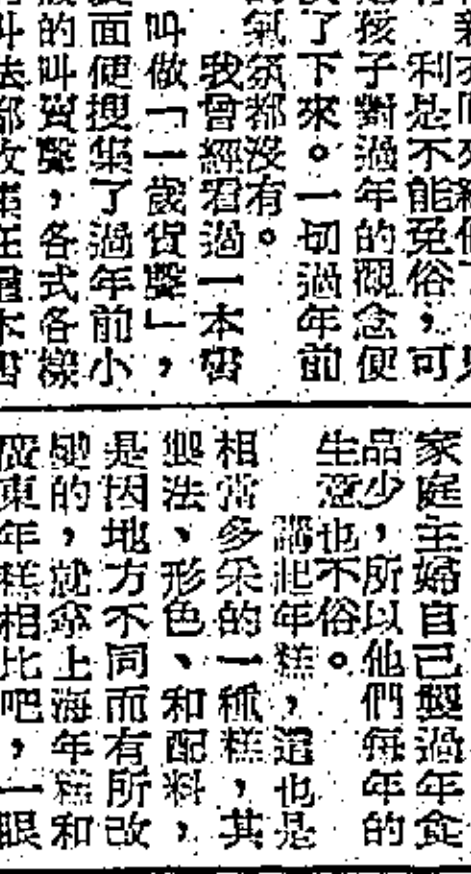 利是不能免俗，可
孩子對過年的觀念便
了下來。一切過年前
氣氛都沒有。
我曾經看過一本書
叫做「一歲貨聲」，
面便搜集了過年前小
的叫賣聲，各式各樣
家庭主婦自己製過年食
品少，所以他們每年的
生意也不俗。
講起年糕，這也是
相當多采的一種糕，其
做法、形色、和配料，
是因地方不同而有所改
變的，就拿上海年糕和
廣東年糕相比吧，一眼